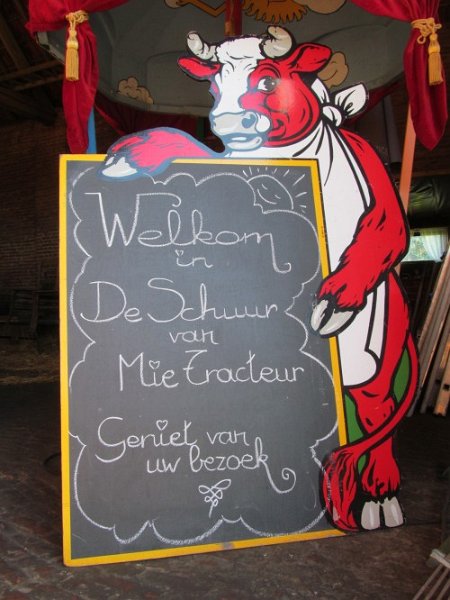 Welkom
in
De Schuur
van
Mie Tracteur
Geniet van
uw bezoek